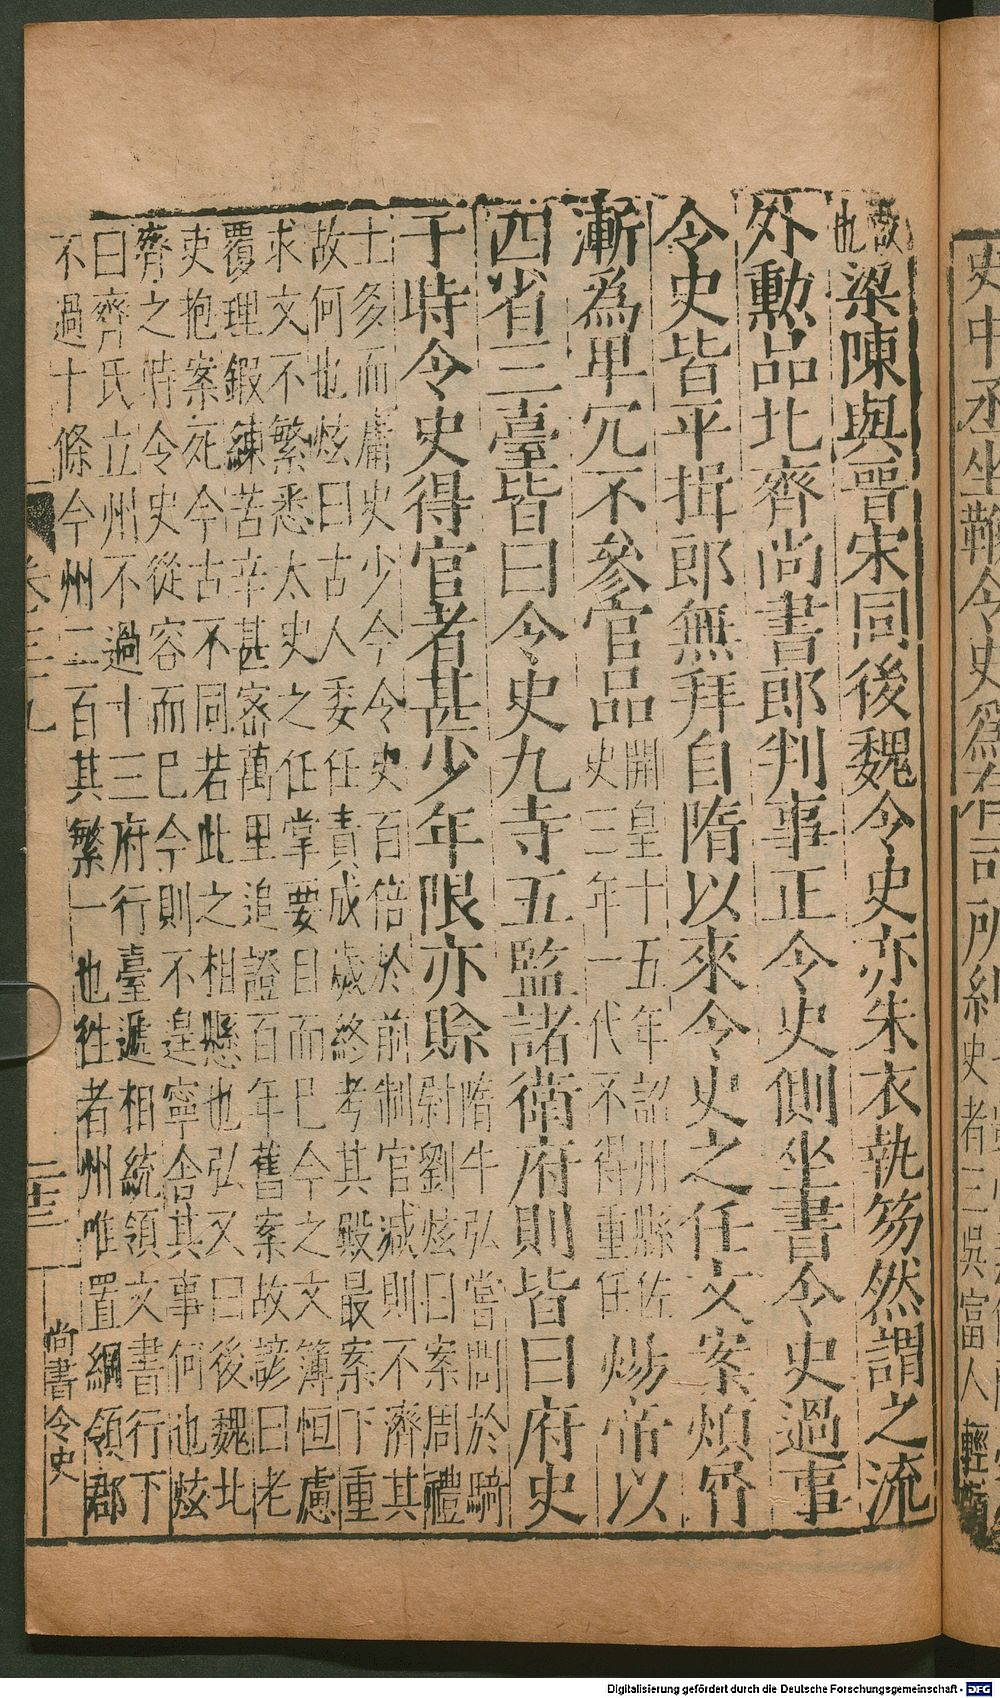 史中丞坐鞾令史爲有司所糾史者三吳富人
故
也梁陳與晉宋同後魏令史亦朱衣執笏然謂之流
外勲品北齊尚書郎判事正令史側坐書令史過事
令史皆平揖郎無拜自隋以來令史之任文案煩屑
漸爲卑冗不參官品
開皇十五年詔州縣佐
史三年一代不得重任
煬帝以
四省三臺皆曰令史九寺五監諸衛府則皆曰府史
于時令史得官者甚少年限亦賒
隋牛弘嘗問於騎
尉劉炫曰案周禮
士多而庸史少今令史百倍於前制官减則不濟其
故何也炫曰古人委任責成歲終考其殿最案下重
求文不繁悉太史之任掌要目而巳今之文簿恒慮
覆理鍜練苦辛甚密萬里追證百年舊案故諺曰老
吏抱案死今古不同若此之相懸也弘又曰後魏北
齊之時令史從容而巳今則不遑寧舍其事何也炫
曰齊氏立州不過十三府行臺遞相統領文書行下
不過十條今州二百其繁一也徃者州唯置綱領郡
尚書令史
Digitalisierung gefördert durch die Deutsche Forschungsgemeinschaft - DFG